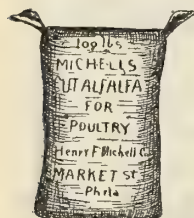 100 lbs
MICHELLS
CUT ALFALFA
FOR
POULTRY
Henry F Michell C.
MARKET St
Phila